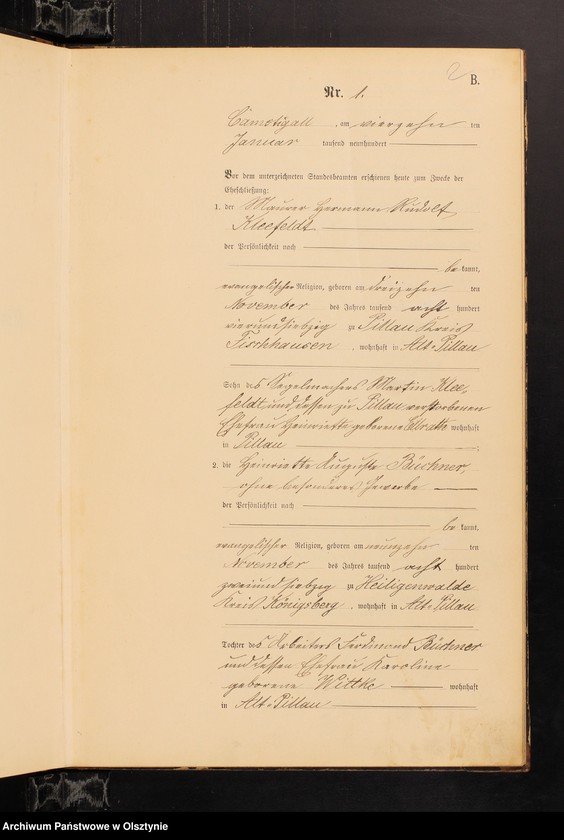 2 B.
Nr. 1.
Camstigall, am vierzehn ten
Januar tausend neunhundert
Vor dem unterzeichneten Standesbeamten erschienen heute zum Zwecke der
Eheschließung:
1. der Maurer Hermann Rudolf
Kleefeldt
der Persönlichkeit nach
be kannt,
evangelischer Religion, geboren am dreizehn ten
November des Jahres tausend acht hundert
vierundsiebzig zu Pillau Kreis
Fischhausen, wohnhaft in Alt-Pillau
Sohn des Segelmachers Martin Klee-
feldt und dessen zu Pillau verstorbenen
Ehefrau Henriette geborene wohnhaft
in Pillau ;
2. die Heinriette Auguste Büchner,
ohne besonderes Gewerbe
der Persönlichkeit nach
be kannt,
evangelischer Religion, geboren am neunzehn ten
November des Jahres tausend acht hundert
zweiundsiebzig zu Heiligenwalde
Kreis Königsberg, wohnhaft in Alt-Pillau
Tochter des Arbeiters Ferdinand Büchner
und dessen Ehefrau Karoline
geborene Wittke wohnhaft
in Alt-Pillau
Archiwum Państwowe w Olsztynie